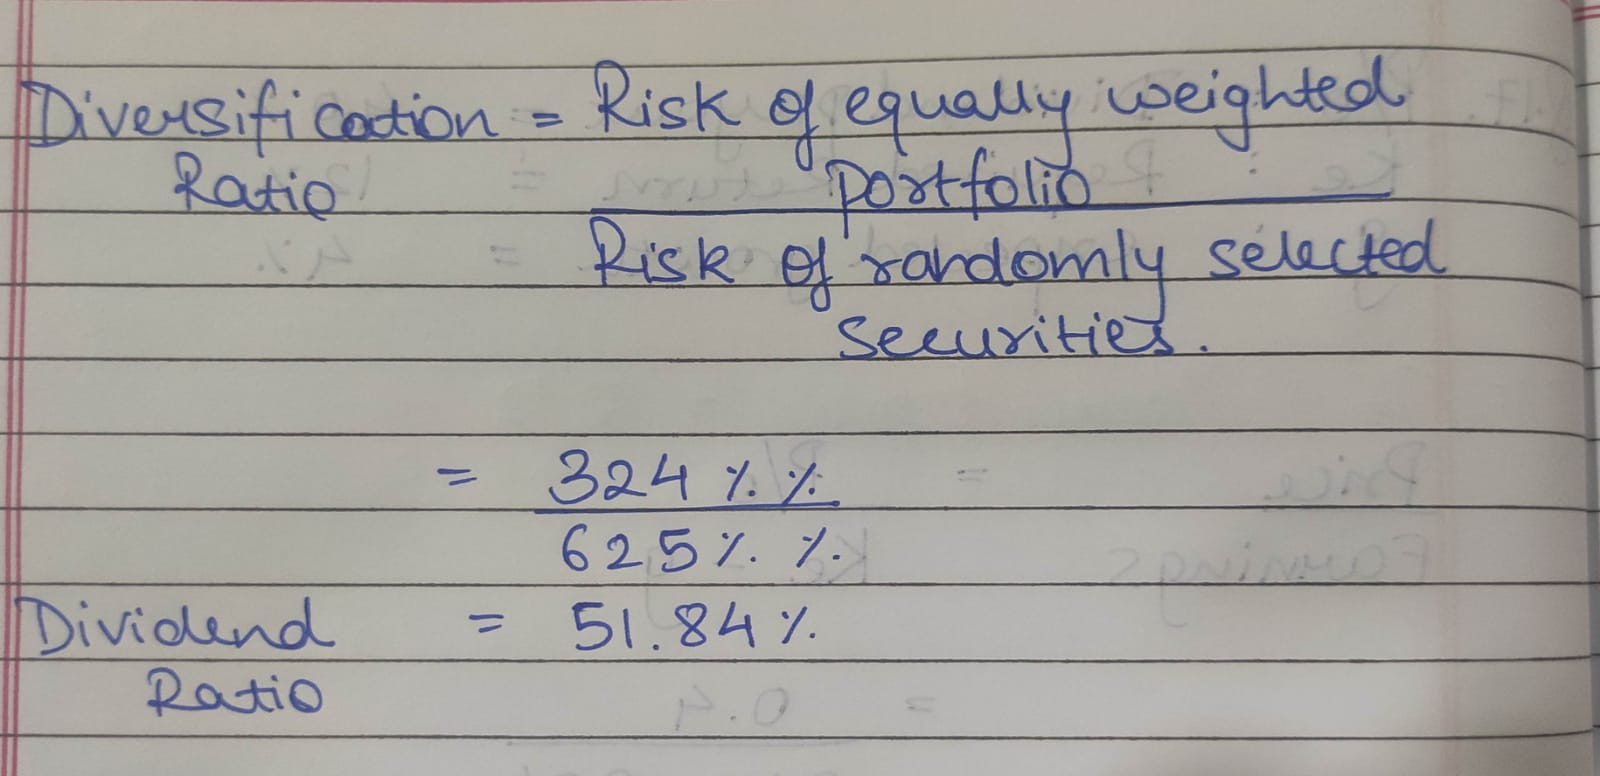 Diversification = Risk of equally weighted
Ratio Portfolio
Risk of randomly selected
securities.
= 324 % %
625 % %
Dividend = 51.84 %
Ratio